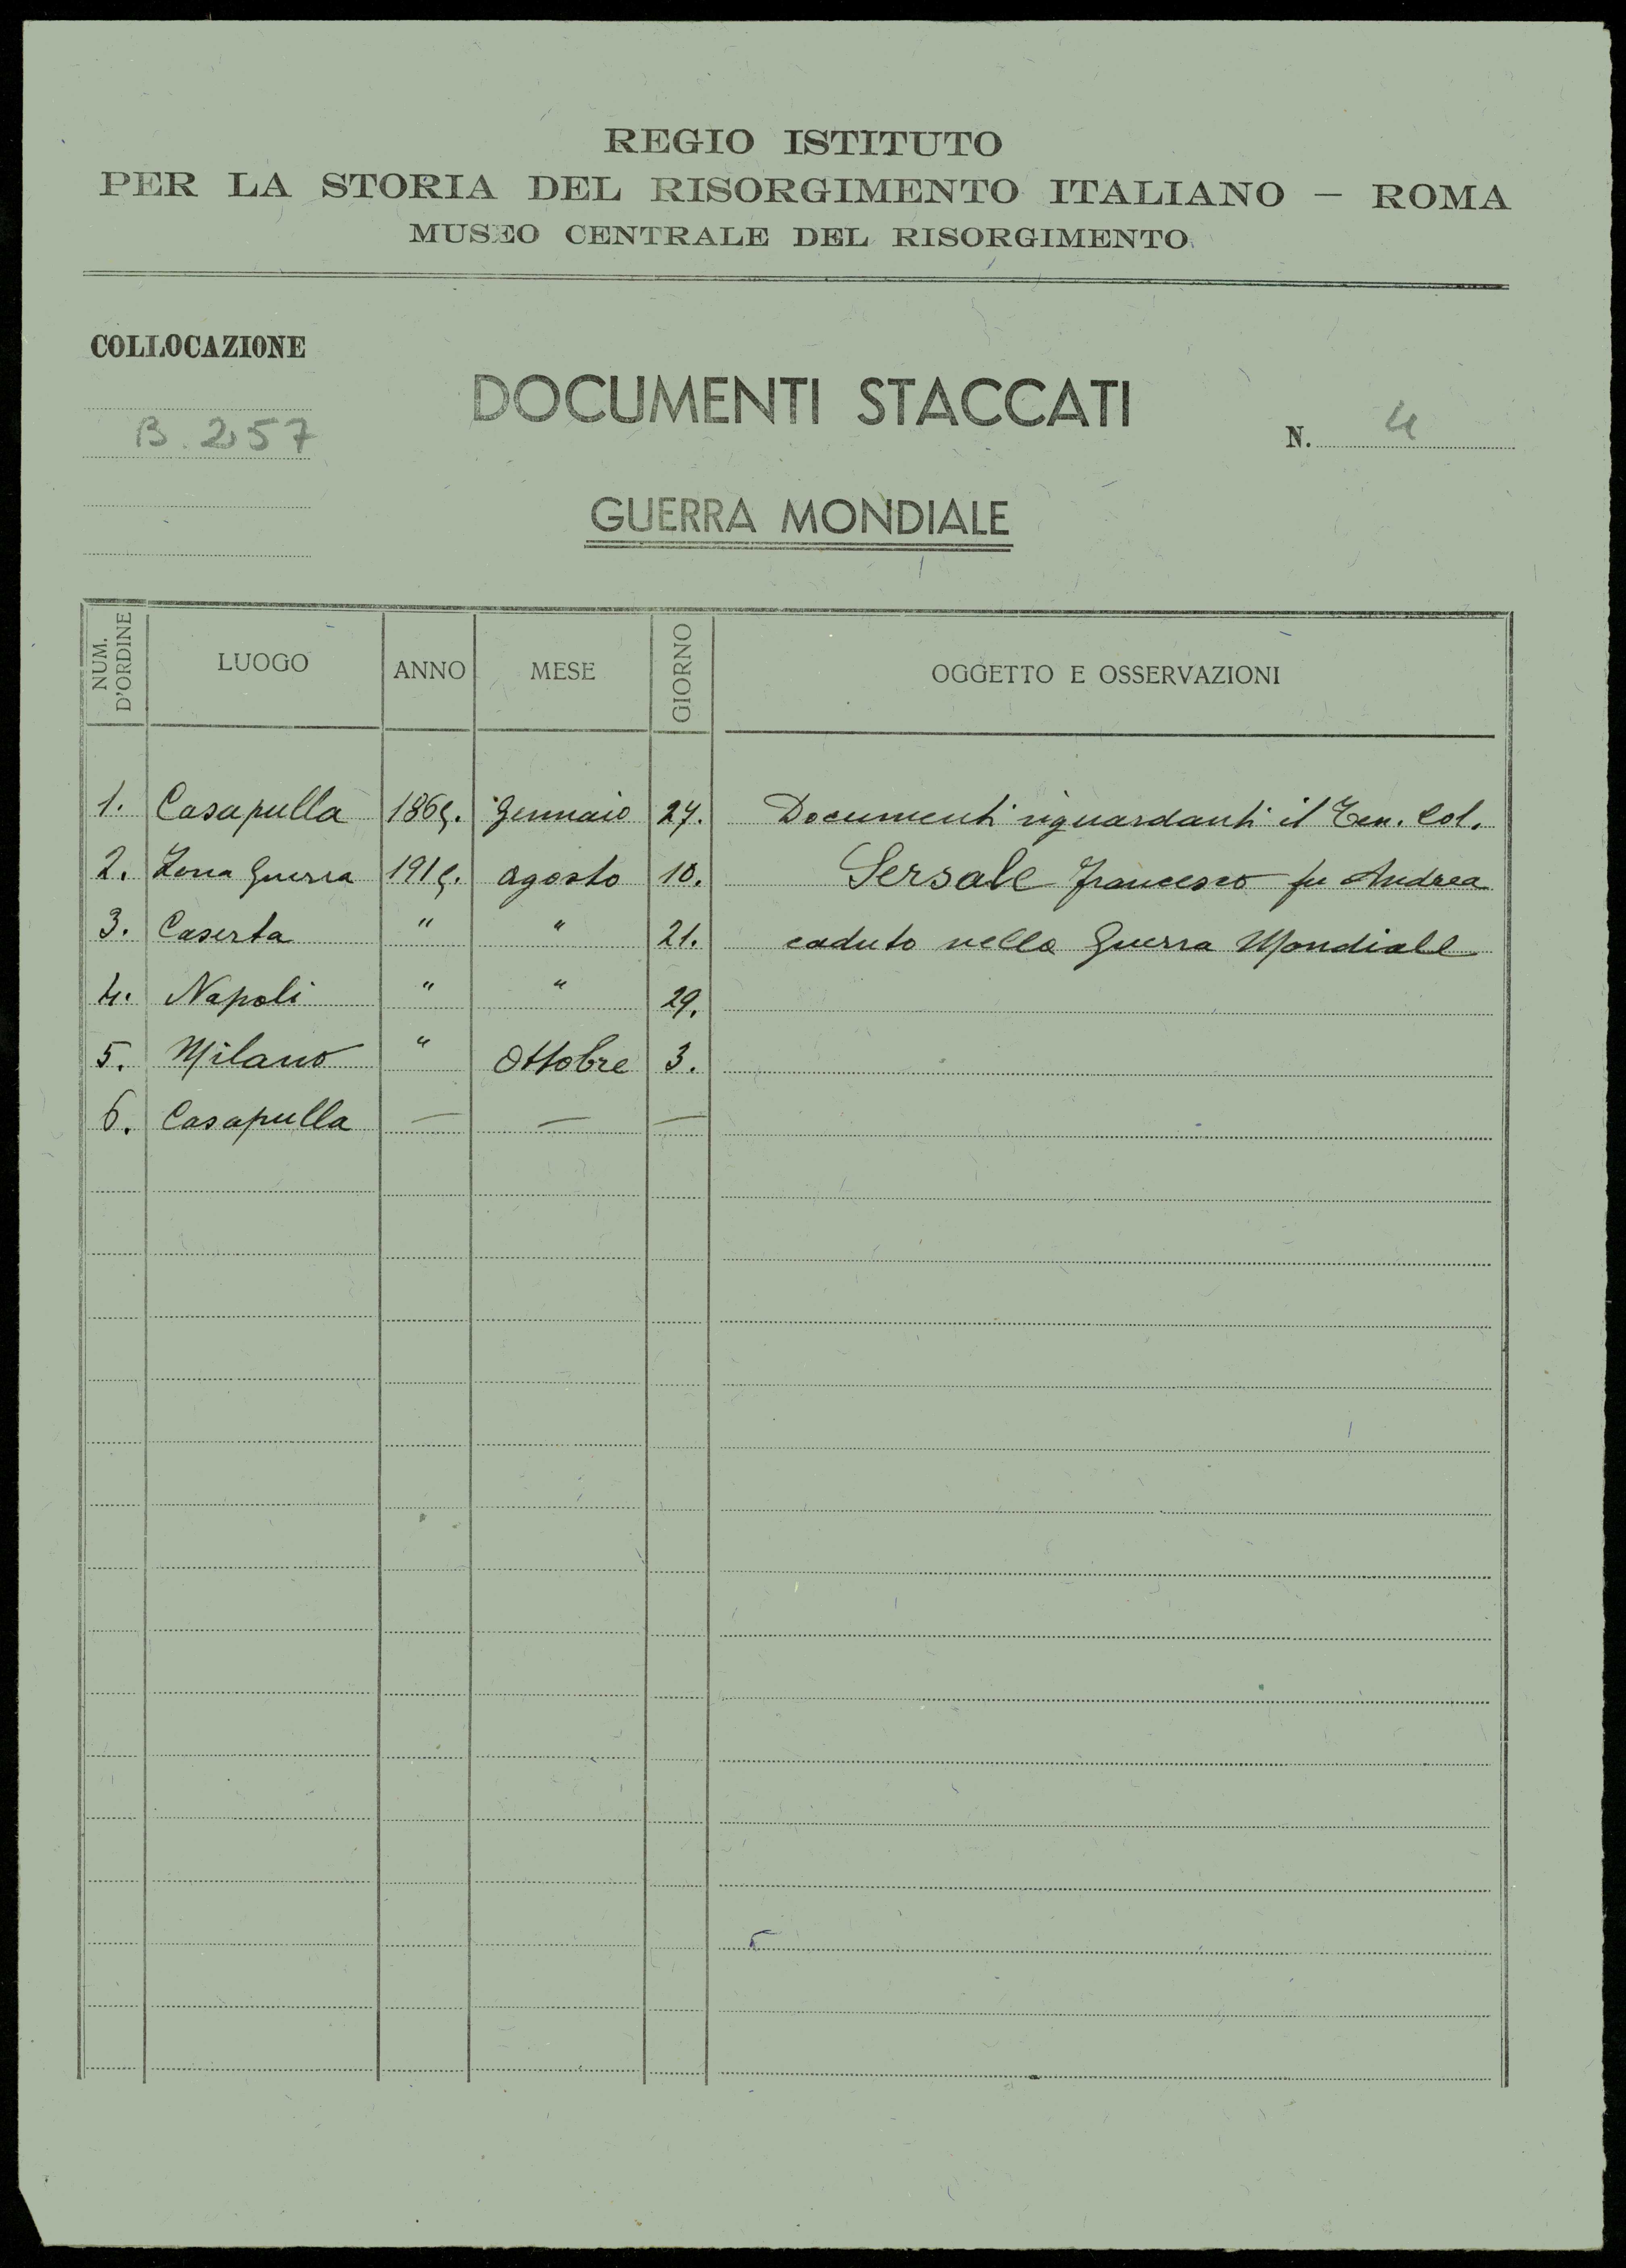 REGIO ISTITUTO
PER LA STORIA DEL RISORGIMENTO ITALIANO — ROMA
MUSEO CENTRALE DEL RISORGIMENTO
COLLOCAZIONE
B. 257
DOCUMENTI STACCATI
N. 4
GUERRA MONDIALE
NUM. D'ORDINE LUOGO ANNO MESE GIORNO OGGETTO E OSSERVAZIONI
1. Casapulla 1865. Gennaio 27. Documenti riguardanti il Ten. Col.
2. Zona Guerra 1915. Agosto 10. Sersale Francesco fu Andrea
3. Caserta " " 21. caduto nella Guerra Mondiale
4. Napoli " " 29.
5. Milano " Ottobre 3.
6. Casapulla — — —